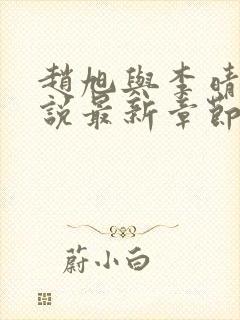 趙旭與李晴
說最新章節
蔚小白